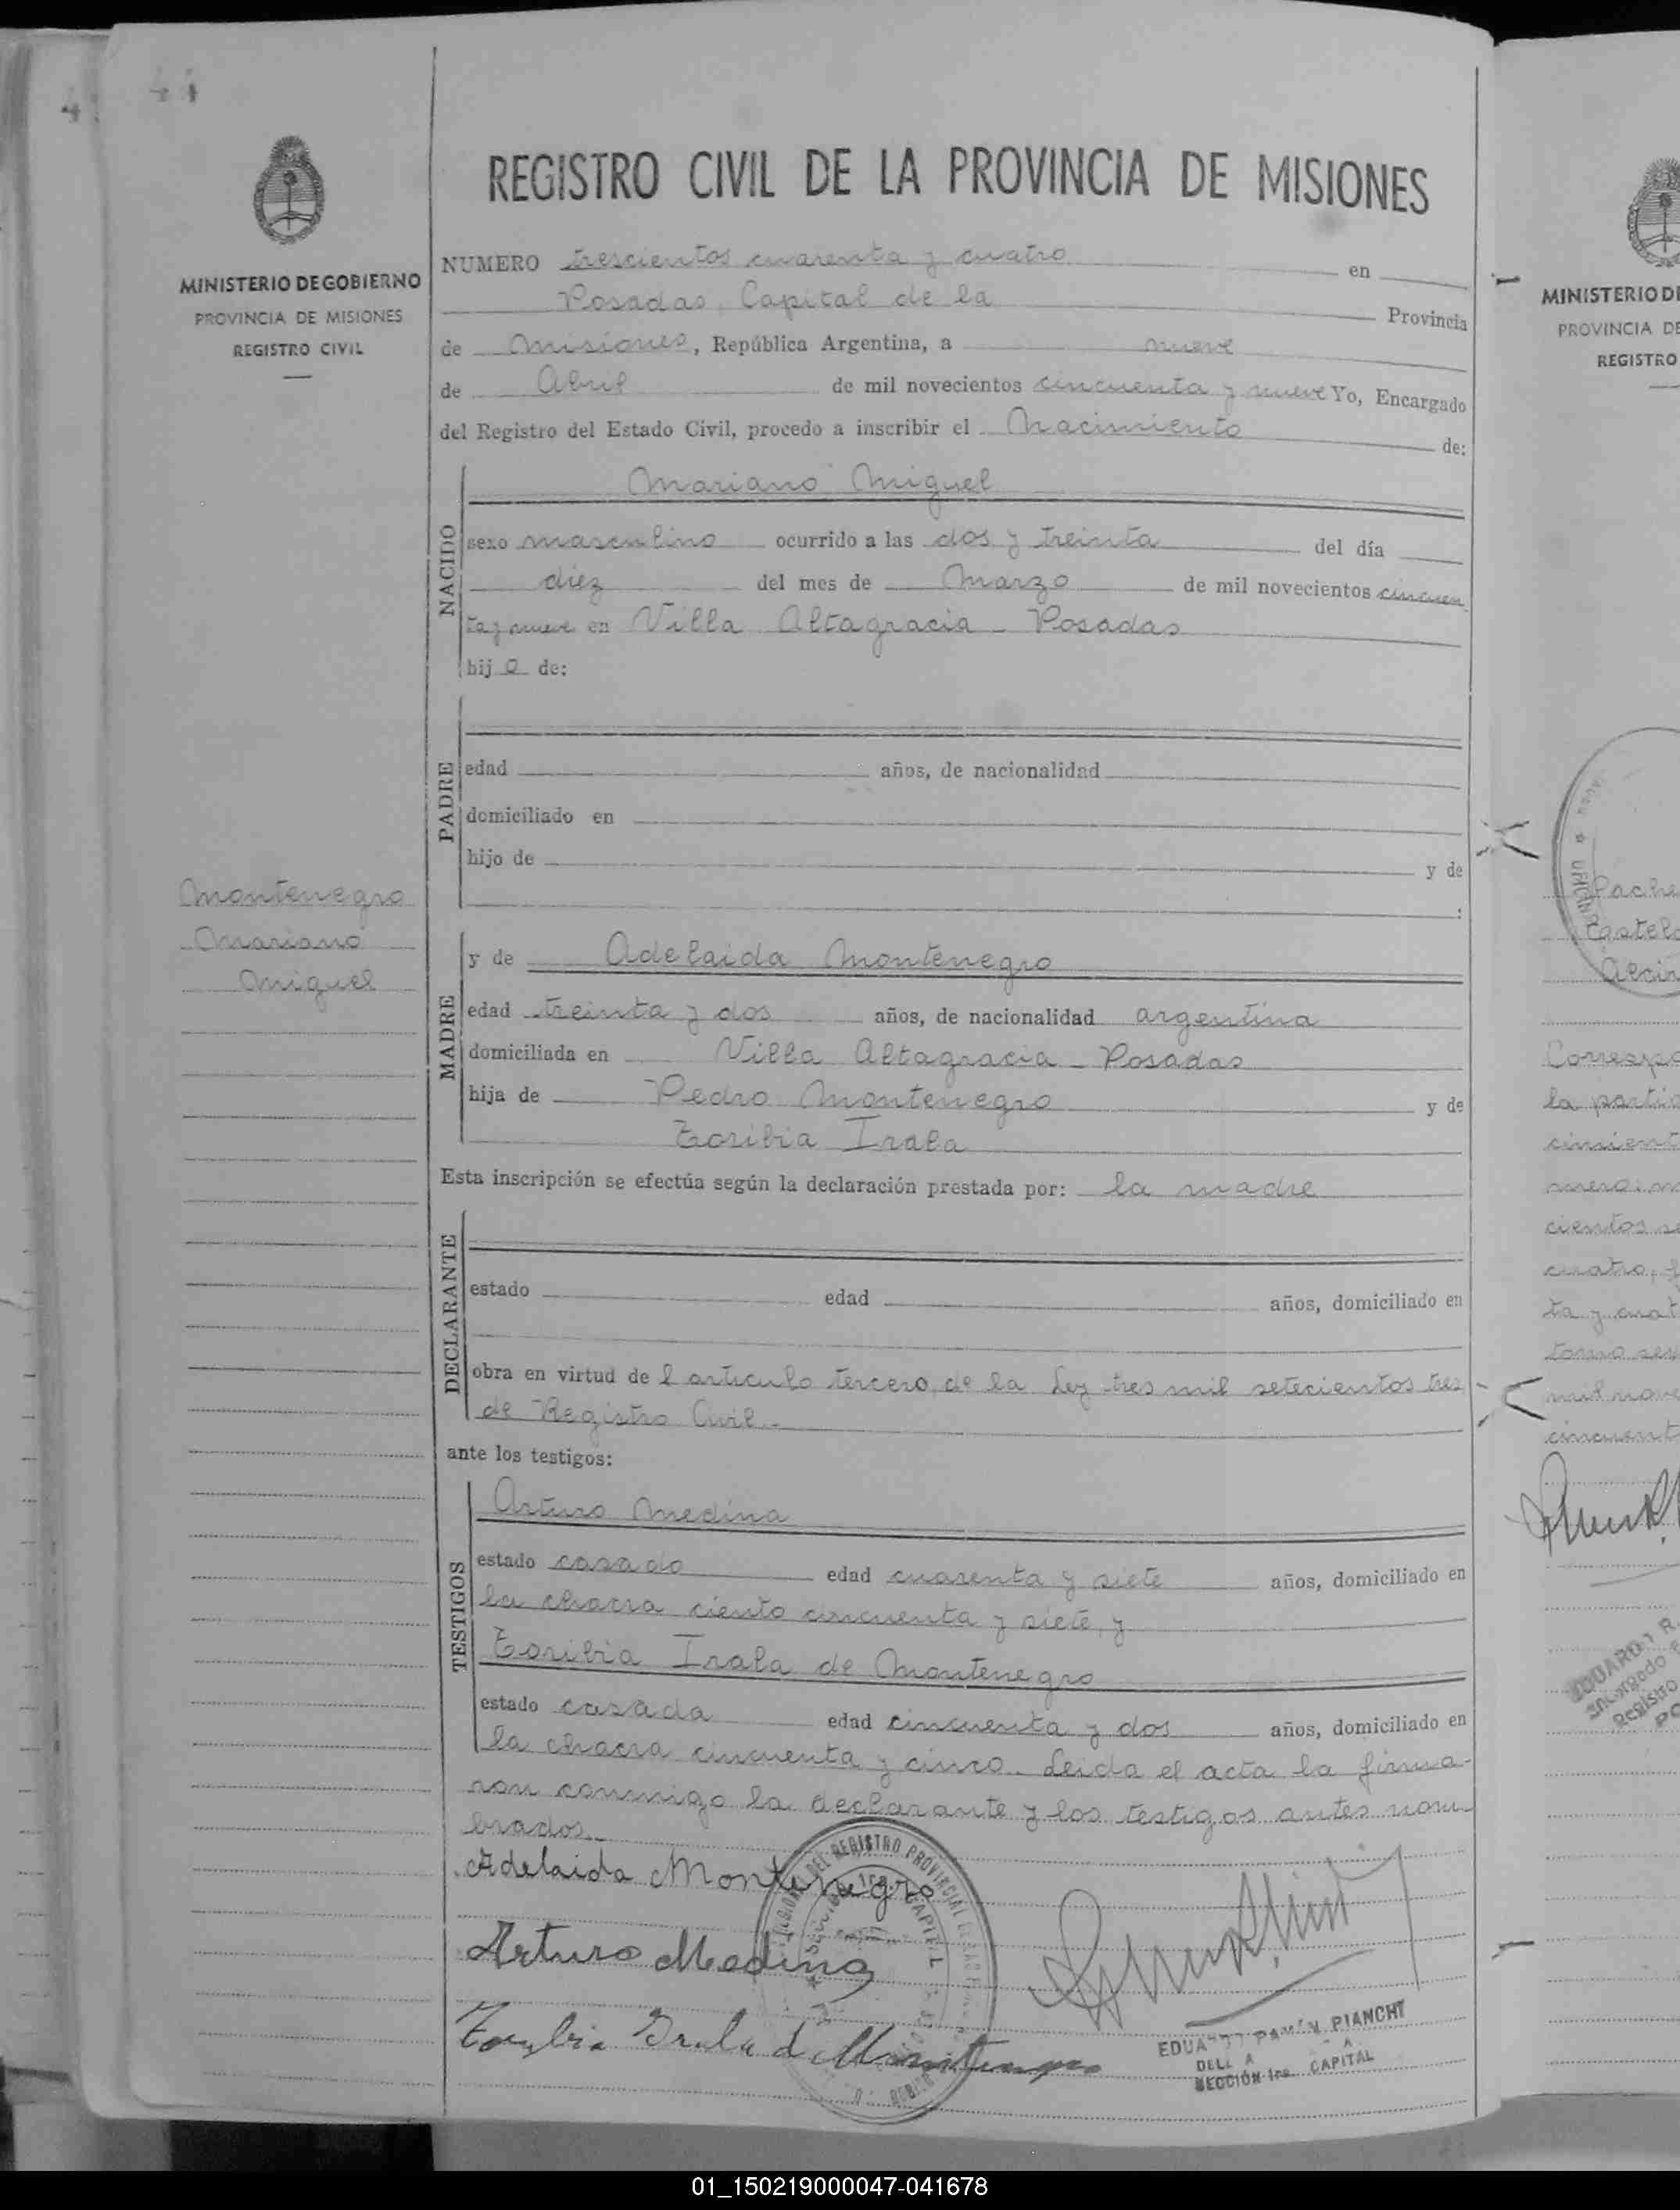 44
MINISTERIO DE GOBIERNO
PROVINCIA DE MISIONES
REGISTRO CIVIL
REGISTRO CIVIL DE LA PROVINCIA DE MISIONES
NUMERO trescientos cuarenta y cuatro en
Posadas, Capital de la Provincia
de Misiones, República Argentina, a nueve
de Abril de mil novecientos cincuenta y nueve Yo, Encargado
del Registro del Estado Civil, procedo a inscribir el Nacimiento de:
NACIDO
Mariano Miguel
sexo masculino ocurrido a las dos y treinta del día
diez del mes de Marzo de mil novecientos cincuen
ta y nueve en Villa Altagracia - Posadas
hijo de:
PADRE
edad años, de nacionalidad
domiciliado en
hijo de y de
Montenegro
Mariano
Miguel
MADRE
y de Adelaida Montenegro
edad treinta y dos años, de nacionalidad argentina
domiciliada en Villa Altagracia - Posadas
hija de Pedro Montenegro y de
Toribia Irala
Esta inscripción se efectúa según la declaración prestada por: la madre
DECLARANTE
estado edad años, domiciliado en
obra en virtud de l artículo tercero, de la Ley tres mil setecientos tres
de Registro Civil.-
ante los testigos:
TESTIGOS
Arturo Medina
estado casado edad cuarenta y siete años, domiciliado en
la chacra ciento cincuenta y siete, y
Toribia Irala de Montenegro
estado casada edad cincuenta y dos años, domiciliado en
la chacra cincuenta y cinco. Leida el acta la firma-
ron conmigo la declarante y los testigos antes nom-
brados.
Adelaida Montenegro
Arturo Medina
Toribia Irala de Montenegro
REGISTRO PROVINCIAL
CAPITAL
PIANCHI
SECCIÓN 1ra. CAPITAL
MINISTERIO DE
PROVINCIA DE
REGISTRO
Pache
Castel
la partid
cimient
cientos
cuatro,
ta y cuat
mil nove
cincuent
01_150219000047-041678